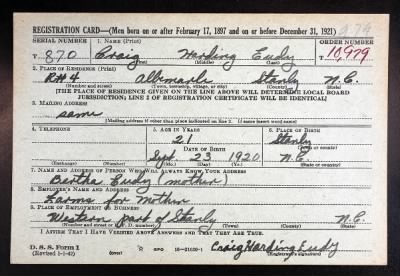 REGISTRATION CARD—(Men born on or after February 17, 1897 and on or before December 31, 1921)
SERIAL NUMBER 1. NAME (Print) ORDER NUMBER
T 870 Craig Harding Eudy T 10,979
(First) (Middle) (Last)
2. PLACE OF RESIDENCE (Print)
R#4 Albemarle Stanly N.C.
(Number and street) (Town, township, village, or city) (County) (State)
[THE PLACE OF RESIDENCE GIVEN ON THE LINE ABOVE WILL DETERMINE LOCAL BOARD
JURISDICTION; LINE 2 OF REGISTRATION CERTIFICATE WILL BE IDENTICAL]
3. MAILING ADDRESS
same
[Mailing address if other than place indicated on line 2. If same insert word same]
4. TELEPHONE 5. AGE IN YEARS 6. PLACE OF BIRTH
21 Stanly
DATE OF BIRTH (Town or county)
Sept. 23 1920 N.C.
(Exchange) (Number) (Mo.) (Day) (Yr.) (State or country)
7. NAME AND ADDRESS OF PERSON WHO WILL ALWAYS KNOW YOUR ADDRESS
Bertha Eudy (mother)
8. EMPLOYER'S NAME AND ADDRESS
Farms for Mother
9. PLACE OF EMPLOYMENT OR BUSINESS
Western part of Stanly N.C.
(Number and street or R. F. D. number) (Town) (County) (State)
I AFFIRM THAT I HAVE VERIFIED ABOVE ANSWERS AND THAT THEY ARE TRUE.
D. S. S. Form 1 GPO 16—21630-1 Craig Harding Eudy
(Revised 1-1-42) (over) (Registrant's signature)